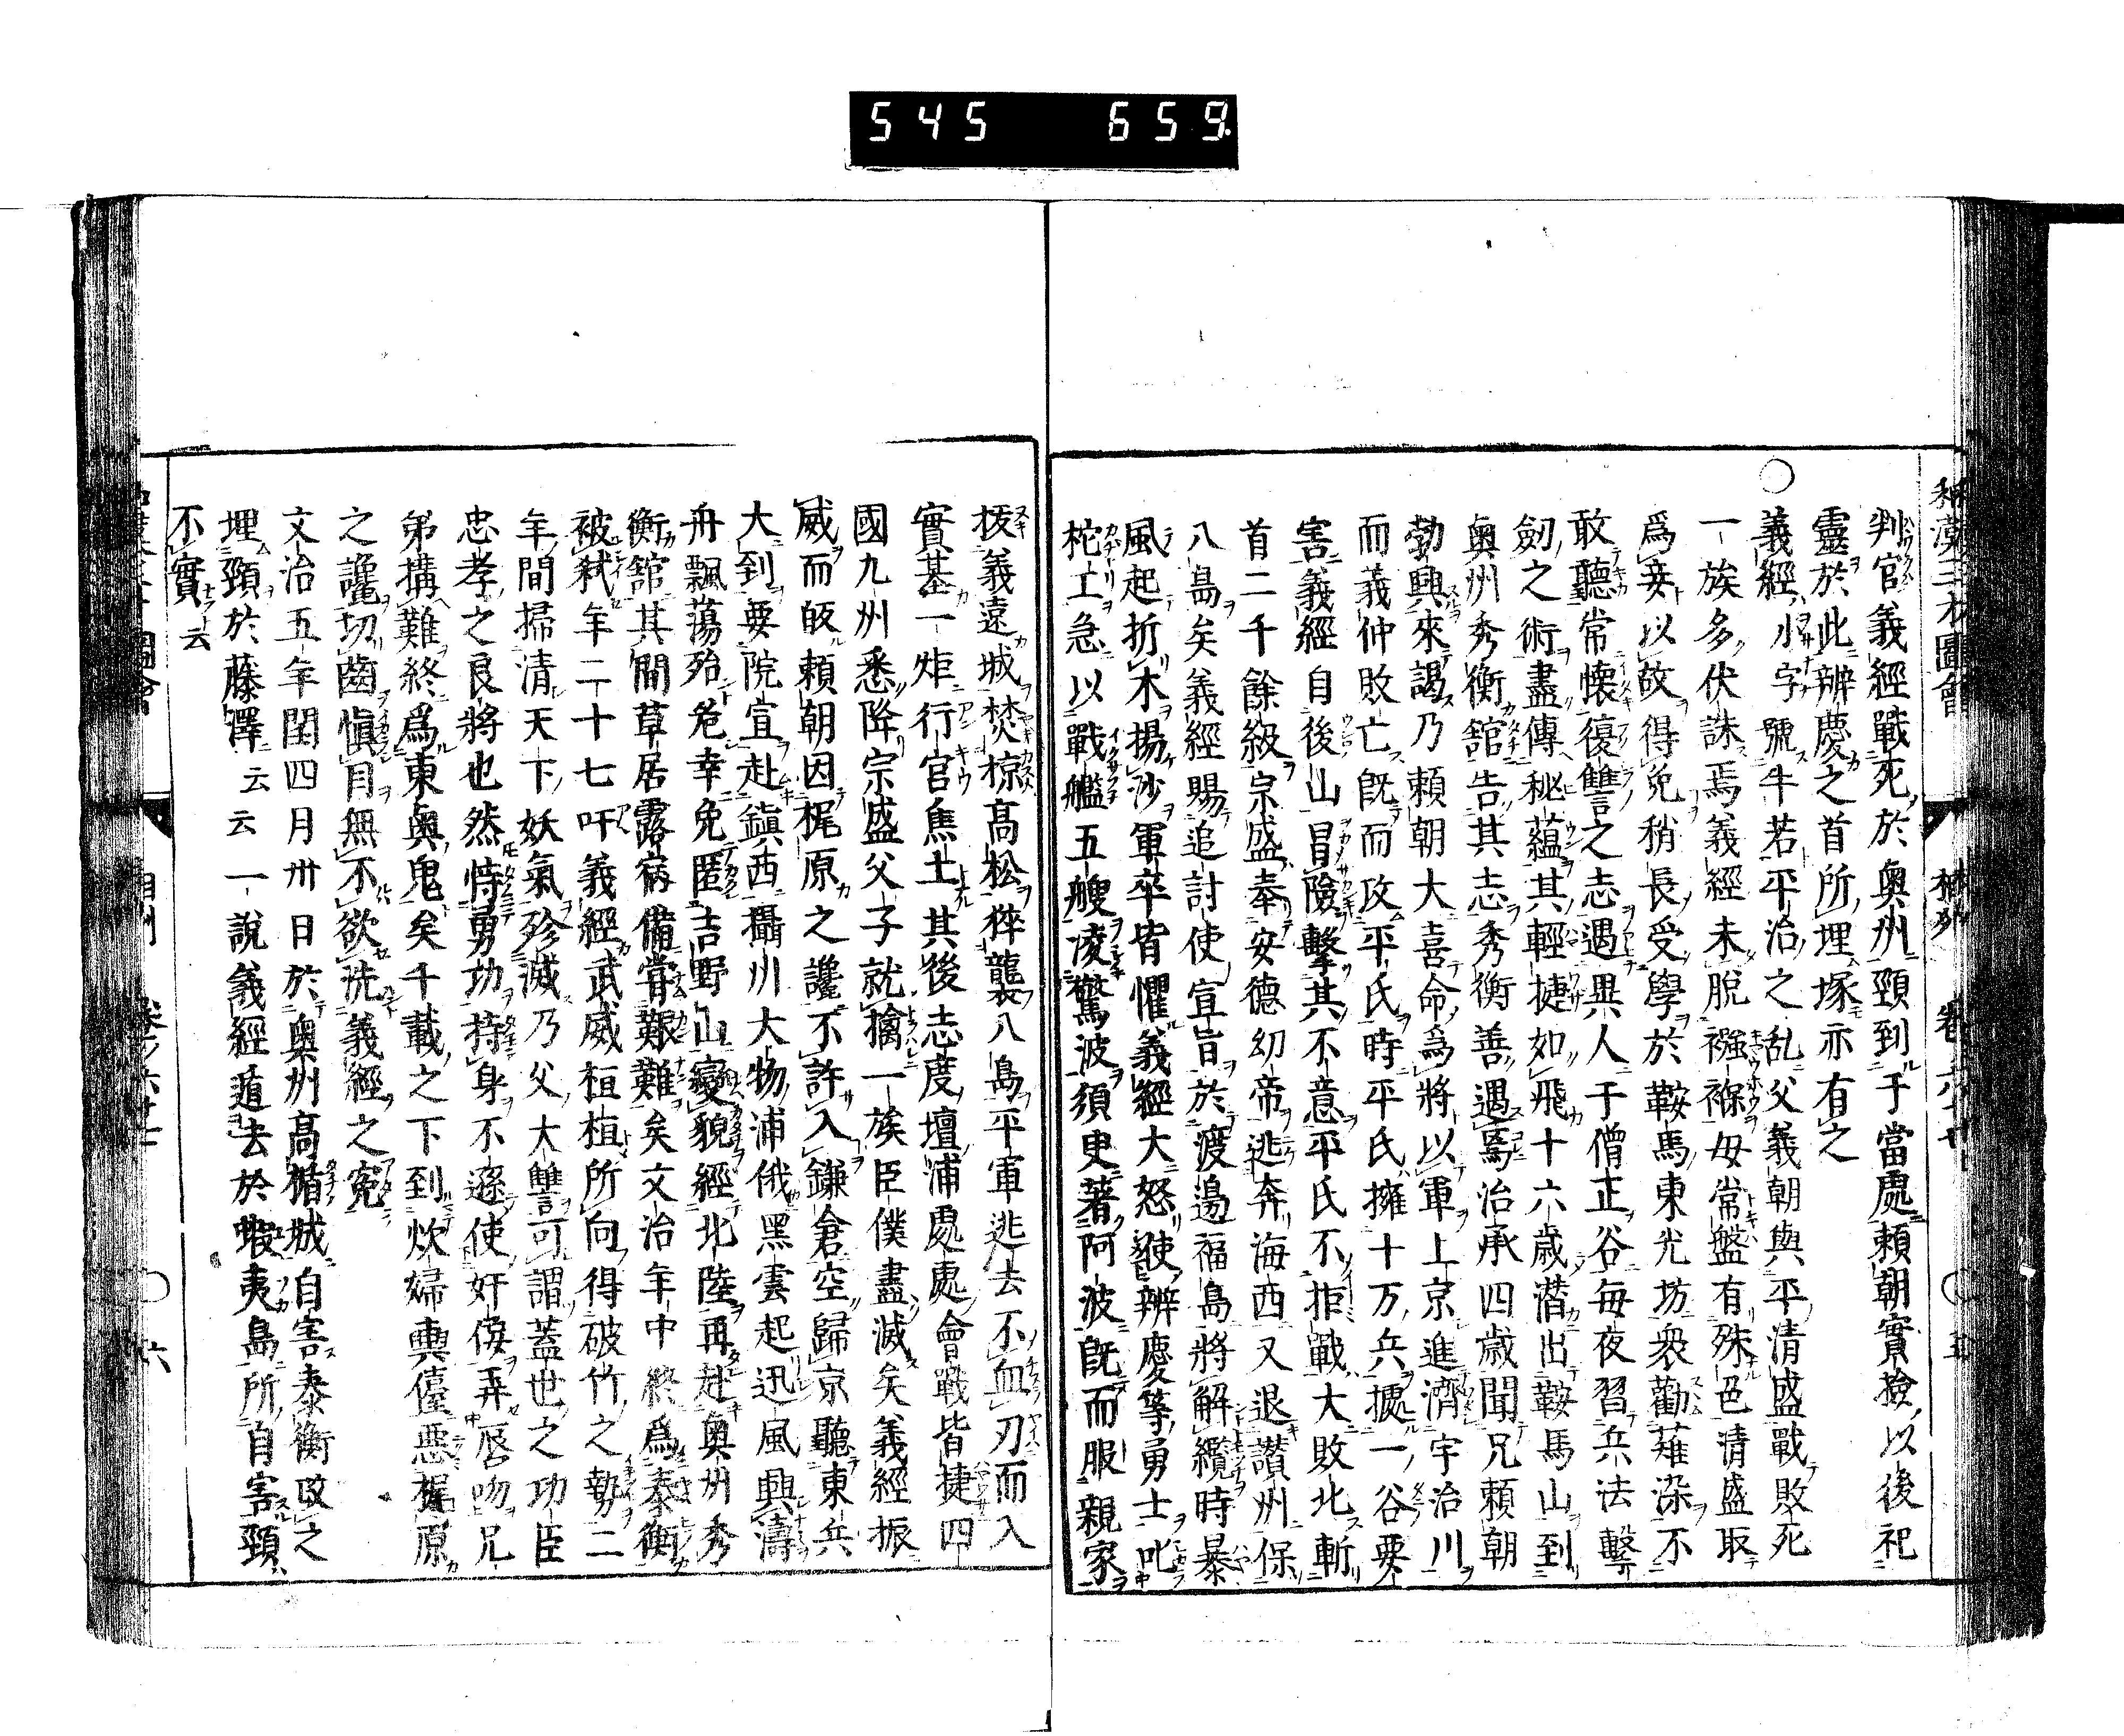 545 659
和漢三才圖會 相州 卷ノ六十七 〇 五
判官義經戰死於奥州頸到于當處賴朝實撿以後祀
靈於此辨慶之首所埋塚亦有之
〇義經小字號牛若平治之乱父義朝與平清盛戰敗死
一族多伏誅焉義經未脫襁褓母常盤有殊色清盛取
爲妾以故得免稍長受學於鞍馬東光坊衆勸薙染不
敢聽常懷復讐之志遇異人于僧正谷每夜習兵法擊
劍之術盡傳秘蘊其輕捷如飛十六歲潜出鞍馬山到
奥州秀衡舘告其志秀衡善遇焉治承四歲聞兄賴朝
勃興來謁乃賴朝大喜命爲將以軍上京進濟宇治川
而義仲敗亡既而攻平氏時平氏擁十万兵據一谷要
害義經自後山冒險擊其不意平氏不拒戰大敗北斬
首二千餘級宗盛奉安德幼帝逃奔海西又退讃州保
八島矣義經賜追討使宣旨於渡邉福島將解纜時暴
風起折木揚沙軍卒皆懼義經大怒使辨慶等勇士叱
柁工急以戰艦五艘凌驚波須臾著阿波既而服親家
拔義遠城焚掠高松猝襲八島平軍逃去不血刃而入
實基一炬行宮焦土其後志度壇浦處處會戰皆捷四
國九州悉降宗盛父子就擒一族臣僕盡滅矣義經振
威而皈賴朝因梶原之讒不許入鎌倉空歸京聽東兵
大到要院宣赴鎮西攝州大物浦俄黑雲起迅風興濤
舟飄蕩殆危幸免匿吉野山變貌經北陸再赴奥州秀
衡舘其間草居露宿備甞艱難矣文治年中終爲泰衡
被弑年二十七吁義經武威桓桓所向得破竹之勢二
年間掃清天下妖氣殄滅乃父大讐可謂蓋世之功臣
忠孝之良將也然恃勇功持身不遜使奸侫弄唇吻兄
弟搆難終爲東奥鬼矣千載之下到炊婦輿儓惡梶原
之讒切齒愼目無不欲洗義經之寃
文治五年閏四月卅日於奥州高楯城自害泰衡攻之
埋頸於藤澤云云一說義經遁去於蝦夷島所自害頸
不實云
相州 〇 六